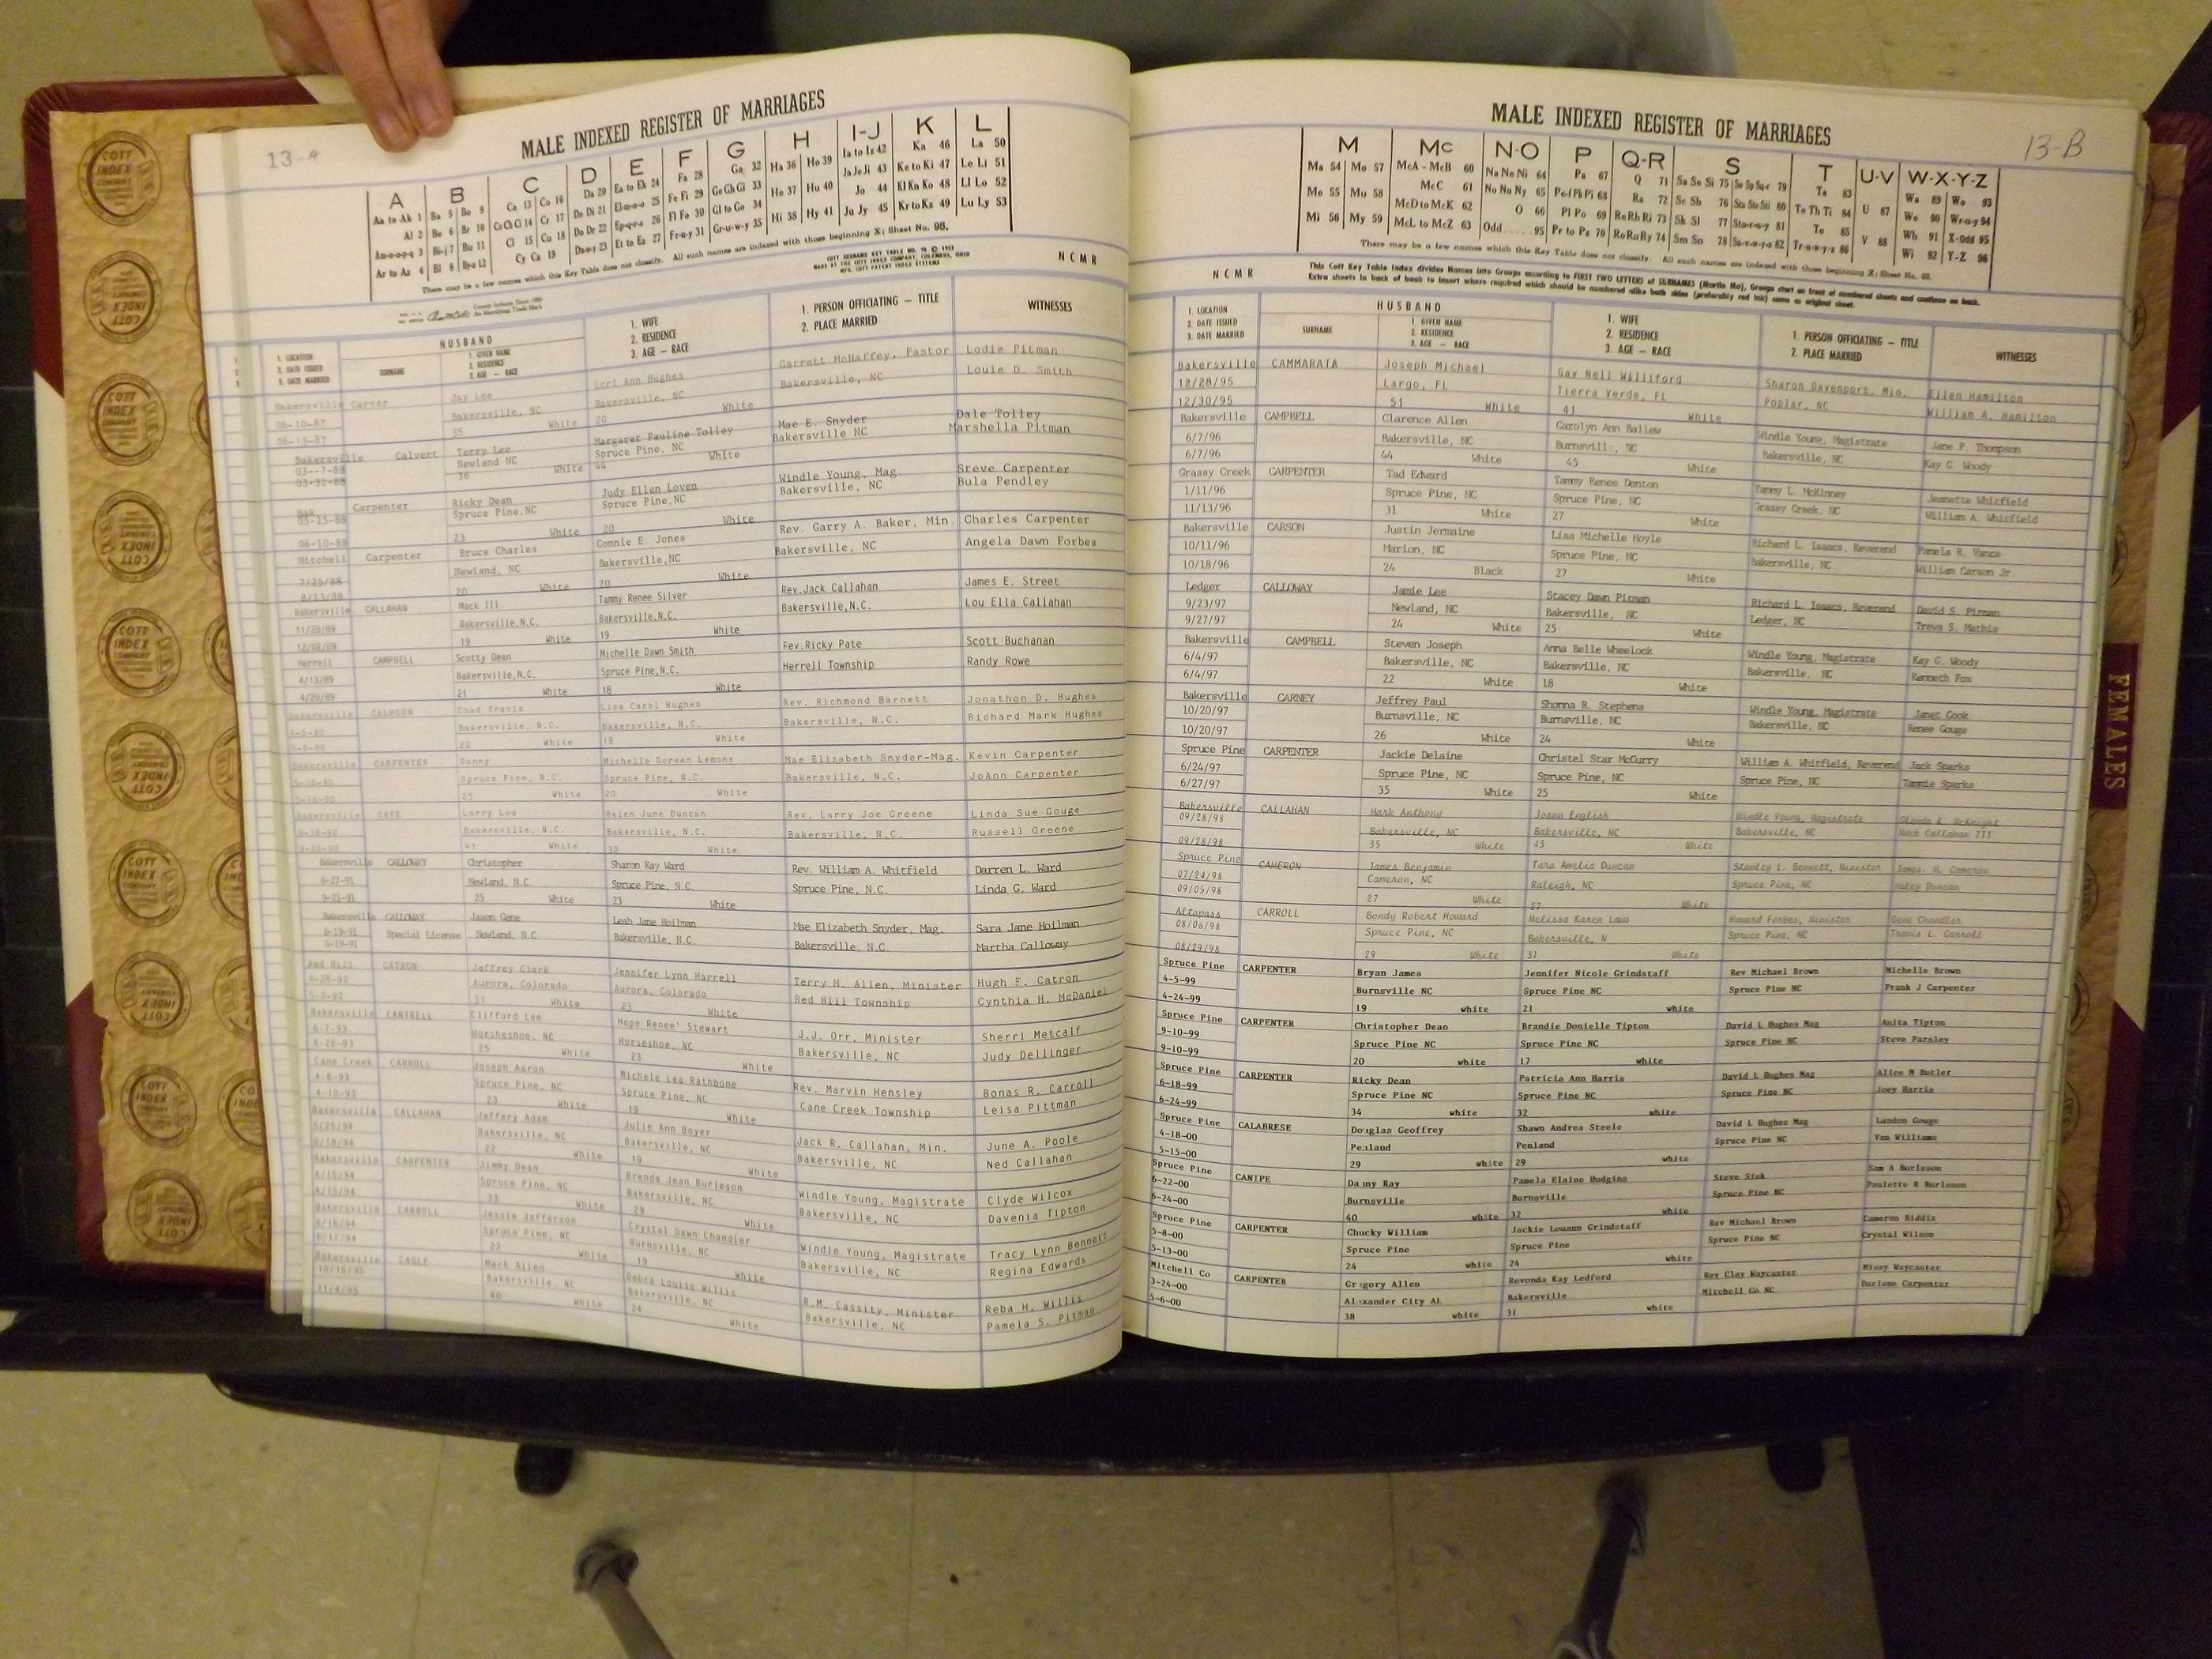 13-A
MALE INDEXED REGISTER OF MARRIAGES
A B C D E F G H I-J K L
Aa to Ak 1 Ba 5 Bo 9 Ca 13 Co 16 Da 20 Ea to Ek 24 Fa 28 Ga 32 Ha 36 Ho 39 Ia to Iz 42 Ka 46 La 50
Al 2 Be 6 Br 10 Ce Ch Ci 14 Cr 17 De Di 21 El-m-n-o 25 Fe Fi 29 Ge Gh Gi 33 He 37 Hu 40 Ja Je Ji 43 Ke to Ki 47 Le Li 51
Am-n-o-p-q 3 Bi-j 7 Bu 11 Cl 15 Cu 18 Do Dr 22 Ep-q-r-s 26 Fl Fo 30 Gl to Go 34 Hi 38 Hy 41 Jo 44 Kl Kn Ko 48 Ll Lo 52
Ar to Az 4 Bl 8 By-z 12 Cy Cz 19 Du-w-y 23 Et to Ez 27 Fr-u-y 31 Gr-u-w-y 35 Ju Jy 45 Kr to Kz 49 Lu Ly 53
There may be a few names which this Key Table does not classify. All such names are indexed with those beginning X; Sheet No. 95.
NCMR
1. LOCATION
2. DATE ISSUED
3. DATE MARRIED
HUSBAND
SURNAME
1. GIVEN NAME
2. RESIDENCE
3. AGE — RACE
1. WIFE
2. RESIDENCE
3. AGE — RACE
1. PERSON OFFICIATING — TITLE
2. PLACE MARRIED
WITNESSES
Bakersville Carver Jay Lee Lori Ann Hughes Garrett McHaffey, Pastor Lodie Pitman
06-10-87 Bakersville, NC Bakersville, NC Bakersville, NC Louie D. Smith
06-13-87 35 White 20 White
Bakersville Calvert Terry Lee Margaret Pauline Tolley Mae E. Snyder Dale Tolley
03--7-88 Newland NC Spruce Pine, NC Bakersville NC Marshella Pitman
03-31-88 36 White 44 White
Bak Carpenter Ricky Dean Judy Ellen Loven Windle Young, Mag. Steve Carpenter
05-25-88 Spruce Pine,NC Spruce Pine,NC Bakersville, NC Bula Pendley
06-10-88 23 White 20 White
Mitchell Carpenter Bruce Charles Connie E. Jones Rev. Garry A. Baker, Min. Charles Carpenter
7/25/88 Newland, NC Bakersville,NC Bakersville, NC Angela Dawn Forbes
8/13/88 20 White 20 White
Bakersville CALLAHAN Mack III Tammy Renee Silver Rev.Jack Callahan James E. Street
11/28/89 Bakersville,N.C. Bakersville,N.C. Bakersville,N.C. Lou Ella Callahan
12/02/89 19 White 19 White
Herrell CAMPBELL Scotty Dean Michelle Dawn Smith Fev.Ricky Pate Scott Buchanan
4/13/89 Bakersville,N.C. Spruce Pine,N.C. Herrell Township Randy Rowe
4/20/89 21 White 18 White
Bakersville CALHOUN Chad Travis Lisa Carol Hughes Rev. Richmond Barnett Jonathon D. Hughes
Bakersville, N.C. Bakersville, N.C. Bakersville, N.C. Richard Mark Hughes
22 White 18 White
Bakersville CARPENTER Danny Michelle Doreen Lemons Mae Elizabeth Snyder-Mag. Kevin Carpenter
Spruce Pine, N.C. Spruce Pine, N.C. Bakersville, N.C. JoAnn Carpenter
25 White 20 White
Bakersville CATE Larry Lou Helen June Duncan Rev. Larry Joe Greene Linda Sue Gouge
Bakersville, N.C. Bakersville, N.C. Bakersville, N.C. Russell Greene
41 White 30 White
Bakersville CALLOWAY Christopher Sharon Kay Ward Rev. William A. Whitfield Darren L. Ward
8-27-91 Newland, N.C. Spruce Pine, N.C. Spruce Pine, N.C. Linda G. Ward
9-21-91 25 White 23 White
Bakersville CALLOWAY Jason Gene Leah Jane Hoilman Mae Elizabeth Snyder, Mag. Sara Jane Hoilman
6-19-91 Special License Newland, N.C. Bakersville, N.C. Bakersville, N.C. Martha Calloway
6-19-91
Red Hill CATRON Jeffrey Clark Jennifer Lynn Harrell Terry M. Allen, Minister Hugh F. Catron
4-28-92 Aurora, Colorado Aurora, Colorado Red Hill Township Cynthia H. McDaniel
5-2-92 31 White 23 White
Bakersville CANTRELL Clifford Lee Hope Renee' Stewart J.J. Orr, Minister Sherri Metcalf
6-7-93 Horsheshoe, NC Horseshoe, NC Bakersville, NC Judy Dellinger
6-26-93 25 White 23 White
Cane Creek CARROLL Joseph Aaron Michele Lea Rathbone Rev. Marvin Hensley Bonas R. Carroll
4-6-93 Spruce Pine, NC Spruce Pine, NC Cane Creek Township Leisa Pittman
4-10-93 23 White 19 White
Bakersville CALLAHAN Jeffery Adam Julie Ann Boyer Jack R. Callahan, Min. June A. Poole
5/25/94 Bakersville, NC Bakersville, NC Bakersville, NC Ned Callahan
6/18/94 22 White 19 White
Bakersville CARPENTER Jimmy Dean Brenda Jean Burleson Windle Young, Magistrate Clyde Wilcox
4/15/94 Spruce Pine, NC Bakersville, NC Bakersville, NC Davenia Tipton
4/15/94 33 White 29 White
Bakersville CARROLL Jessie Jefferson Crystal Dawn Chandler Windle Young, Magistrate Tracy Lynn Bennett
6/16/94 Spruce Pine, NC Burnsville, NC Bakersville, NC Regina Edwards
6/17/94 22 White 19 White
Bakersville CAGLE Mark Allen Debra Louise Willis R.M. Cassity, Minister Reba H. Willis
10/16/95 Bakersville, NC Bakersville, NC Bakersville, NC Pamela S. Pitman
11/4/95 40 White 24 White
13-B
MALE INDEXED REGISTER OF MARRIAGES
M Mc N-O P Q-R S T U-V W-X-Y-Z
Ma 54 Mo 57 McA - McB 60 Na Ne Ni 64 Pa 67 Q 71 Sa Se Si 75 So Sp Sq-r 79 Ta 83 Wa 89 Wo 93
Me 55 Mu 58 McC 61 No Nu Ny 65 Pe-f Ph Pi 68 Ra 72 Sc Sh 76 Sta Ste Sti 80 Te Th Ti 84 U 87 We 90 Wr-u-y 94
Mi 56 My 59 McD to McK 62 O 66 Pl Po 69 Re Rh Ri 73 Sk Sl 77 Sto-r-u-y 81 To 85 Wh 91 X-Odd 95
McL to McZ 63 Odd 95 Pr to Pz 70 Ro Ru Ry 74 Sm Sn 78 Su-v-w-y-z 82 Tr-u-w-y-z 86 V 88 Wi 92 Y-Z 96
There may be a few names which this Key Table does not classify. All such names are indexed with those beginning X; Sheet No. 95.
NCMR
This Cott Key Table Index divides Names into Groups according to FIRST TWO LETTERS of SURNAMES (Martin Ma), Groups start on front of numbered sheets and continue on back.
Extra sheets in back of book to insert where required which should be numbered alike both sides (preferably red ink) same as original sheet.
1. LOCATION
2. DATE ISSUED
3. DATE MARRIED
HUSBAND
SURNAME
1. GIVEN NAME
2. RESIDENCE
3. AGE — RACE
1. WIFE
2. RESIDENCE
3. AGE — RACE
1. PERSON OFFICIATING — TITLE
2. PLACE MARRIED
WITNESSES
Bakersville CAMMARATA Joseph Michael Gay Nell Williford Sharon Davenport, Min. Ellen Hamilton
12/28/95 Largo, FL Tierra Verde, FL Poplar, NC William A. Hamilton
12/30/95 51 White 41 White
Bakersville CAMPBELL Clarence Allen Carolyn Ann Ballew Windle Young, Magistrate Jane P. Thompson
6/7/96 Bakersville, NC Burnsville, NC Bakersville, NC Kay G. Woody
6/7/96 44 White 45 White
Grassy Creek CARPENTER Tad Edward Tammy Renee Denton Tammy L. McKinney Jeanette Whitfield
1/11/96 Spruce Pine, NC Spruce Pine, NC Grassy Creek, NC William A. Whitfield
11/13/96 31 White 27 White
Bakersville CARSON Justin Jermaine Lisa Michelle Hoyle Richard L. Isaacs, Reverend Pamela R. Vance
10/11/96 Marion, NC Spruce Pine, NC Bakersville, NC William Carson Jr.
10/18/96 24 Black 27 White
Ledger CALLOWAY Jamie Lee Stacey Dawn Pitman Richard L. Isaacs, Reverend David S. Pitman
9/23/97 Newland, NC Bakersville, NC Ledger, NC Treva S. Mathis
9/27/97 24 White 25 White
Bakersville CAMPBELL Steven Joseph Anna Belle Wheelock Windle Young, Magistrate Kay G. Woody
6/4/97 Bakersville, NC Bakersville, NC Bakersville, NC Kenneth Fox
6/4/97 22 White 18 White
Bakersville CARNEY Jeffrey Paul Shonna R. Stephens Windle Young, Magistrate Janet Cook
10/20/97 Burnsville, NC Burnsville, NC Bakersville, NC Renee Gouge
10/20/97 26 White 24 White
Spruce Pine CARPENTER Jackie Delaine Christel Star McCurry William A. Whitfield, Reverend Jack Sparks
6/24/97 Spruce Pine, NC Spruce Pine, NC Spruce Pine, NC Tammie Sparks
6/27/97 35 White 25 White
Bakersville CALLAHAN Mark Anthony Joann English Windle Young, Magistrate Glenda K. McKnight
09/28/98 Bakersville, NC Bakersville, NC Bakersville, NC Mack Callahan III
09/28/98 35 White 43 White
Spruce Pine CAMERON James Benjamin Tara Amelia Duncan Stanley L. Bennett, Minister James. H. Cameron
07/24/98 Cameron, NC Raleigh, NC Spruce Pine, NC Haley Duncan
09/05/98 27 White 27 White
Altapass CARROLL Bondy Robert Howard Melissa Karen Laws Howard Forbes, Minister Gene Chandler
08/06/98 Spruce Pine, NC Bakersville, N Spruce Pine, NC Travis L. Carroll
08/29/98 29 White 31 White
Spruce Pine CARPENTER Bryan James Jennifer Nicole Grindstaff Rev Michael Brown Michelle Brown
4-5-99 Burnsville NC Spruce Pine NC Spruce Pine NC Frank J Carpenter
4-24-99 19 white 21 white
Spruce Pine CARPENTER Christopher Dean Brandie Donielle Tipton David L Hughes Mag Anita Tipton
9-10-99 Spruce Pine NC Spruce Pine NC Spruce Pine NC Steve Parsley
9-10-99 20 white 17 white
Spruce Pine CARPENTER Ricky Dean Patricia Ann Harris David L Hughes Mag Alice M Butler
6-18-99 Spruce Pine NC Spruce Pine NC Spruce Pine NC Joey Harris
6-24-99 34 white 32 white
Spruce Pine CALABRESE Douglas Geoffrey Shawn Andrea Steele David L Hughes Mag Landon Gouge
4-18-00 Penland Penland Spruce Pine NC Van Williams
5-15-00 29 white 29 white
Spruce Pine CANIPE Danny Ray Pamela Elaine Hudgins Steve Sisk Sam A Burleson
6-22-00 Burnsville Burnsville Spruce Pine NC Paulette R Burleson
6-24-00 40 white 32 white
Spruce Pine CARPENTER Chucky William Jackie Louann Grindstaff Rev Michael Brown Cameron Biddix
5-8-00 Spruce Pine Spruce Pine Spruce Pine NC Crystal Wilson
5-13-00 24 white 24 white
Mitchell Co CARPENTER Gregory Allen Revonda Kay Ledford Rev Clay Waycaster Missy Waycaster
3-24-00 Alexander City AL Bakersville Mitchell Co NC Darlene Carpenter
5-6-00 38 white 31 white
FEMALES